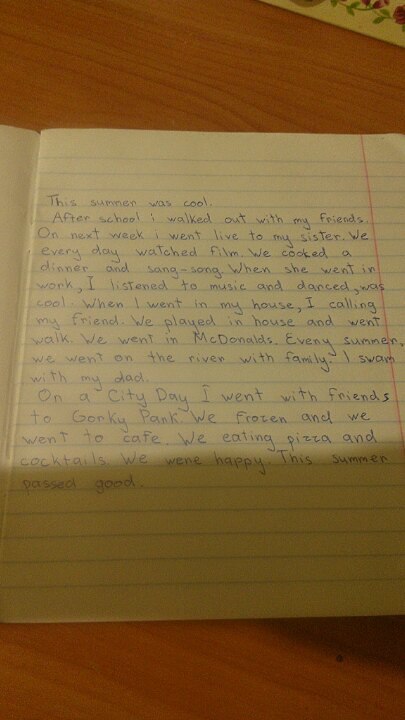 This summer was cool.
After school i walked out with my friends.
On next week i went live to my sister. We
every day watched film. We cooked a
dinner and sang-song. When she went in
work, I listened to music and danced, was
cool. When I went in my house, I calling
my friend. We played in house and went
walk. We went in McDonalds. Every summer,
we went on the river with family. I swam
with my dad.
On a City Day I went with friends
to Gorky Park. We frozen and we
went to cafe. We eating pizza and
cocktails. We were happy. This summer
passed good.